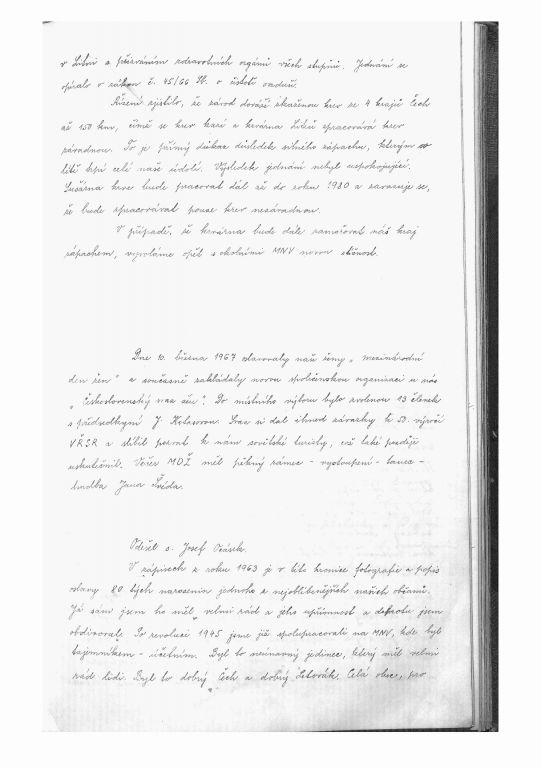 v Litni a přizváním zdravotních orgánů všech stupňů. Jednání se
opíralo o zákon č. 45/66 Sb. o čistotě vzduchu.
Řízení zjistilo, že závod dováží zkaženou krev ze 4 krajů Čech
až 150 km, čímž se krev kazí a kravárna Liteň zpracovává krev
závadnou. To je přímý důkaz důsledek silného zápachu, kterým
trpí celé naše údolí. Výsledek jednání nebyl uspokojující.
Sušárna krve bude pracovat dál až do roku 1980 a zavazuje se,
že bude zpracovávat pouze krev nezávadnou.
V případě, že krvárna bude dále zamořovat náš kraj
zápachem, vyvoláme opět s okolními MNV novou stížnost.
Dne 10. března 1967 slavovaly naše ženy „ mezinárodní
den žen " a současně zakládaly novou společenskou organizaci u nás
„ Československý svaz žen". Do místního výboru bylo zvoleno 13 členek
s předsedkyní J. Kolarovou. Svaz si dal ihned závazky k 50. výročí
VŘSR a slíbil pozvat k nám sovětské turisty, což také později
uskutečnil. Večer MDŽ měl pěkný rámec - vystoupení - tanec -
hudba Jana Švéda.
Odešel s. Josef
V zápisech z roku 1963 je v této kronice fotografie a popis
oslavy 80 tých narozenin jednoho z nejoblíbenějších našich občanů.
Já sám jsem ho měl velmi rád a jeho upřímnost a dobrotu jsem
obdivoval. Po revoluci 1945 jsme již spolupracovali na MNV, kde byl
tajemníkem - účetním. Byl to nesmírný jedinec, který měl velmi
rád lidi. Byl to dobrý Čech a dobrý Letovák. Celá obec, pro